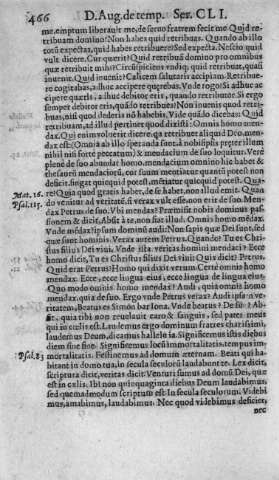 466 D. Aug. de temp. Ser. CLI.
me, emptum liberauit me, de seruo fratrem fecit me Quid re-
tribuam domino? Non habes quid retribuas. Quando ab illo
totū expectas, quid habes retribuere? Sed expecta. Nescio quid
vult dicere. Cur querit? Quid retribuā domino pro omnibus
quæ retribuit mihi? Circūspiciens vndiq; quid retribuat, quasi
inuenit. Quid inuenit? Calicem salutaris accipiam. Retribue-
re cogitabas, adhuc accipere quærebas. Vide rogo. Si adhuc ac
cipere quæris, adhuc debitor eris, quando retributor? Si ergo
semper debitor eris, quādo retribues? Non inuenis quod retri-
buas, nisi quod dederit nō habebis. Vide quādo dicebas: Quid
retribuam, ad illud pertinet quod dixisti: Omnis homo men-
dax. Qui enim voluerit dicere, qa retribuet aliquid Deo, men-
dax est. (Omnia ab illo speranda sunt a nobis. Ipsis propter illum
nihil nisi forte peccatum) & mendacium de suo loquitur. Verè
planè de suo abundat homo, mendacium omnino hic habet &
thesaurū mendaciorū, cor suum mentiatur quantū potest non
deficit. fingat quicquid potest, mētiatur quicquid potest. Qua-
Mat. 16. re? Quia quod gratis habet, de se habet, non illud emit. Quan-
Psal. 115. do veniat ad veritatē, si verax vult esse, non erit de suo. Men-
dax Petrus de suo. Vbi mendax? Præmisit nobis dominus pas-
sionem & dicit, Absit a te, non fiet illud. Omnis homo mēdax.
Vnde mēdax? ipsum dominū audi: Non sapis quæ Dei sunt, sed
quæ sunt hominis. Verax autem Petrus. Quando? Tu es Chri-
stus filius Dei viui. Vnde illa veritas homini mendaci? Ecce
homo dicit, Tu es Christus filius Dei viui Quis dicit? Petrus.
Quid erat Petrus? Homo qui dixit verum. Certè omnis homo
mendax. Ecce, ecce lingua eius, ecce lingua de lingua eius.
Quo modo omnis homo mendax? Audi, quia omnis homo
mendax. quia de suo. Ergo vnde Petrus verax? Audi ipsam ve-
ritatem, Beatus es Simon bar Iona. Vnde beatus? De se? Ab-
sit, quia tibi non reuelauit caro & sanguis, sed pater meus
qui in cœlis est. Laudemus ergo dominum fratres charissimi,
laudemus Deum, dicamus halleluia. Significemus istis diebus
diem sine fine. Significemus locū immortalitatis, tempus im-
Psal. 83. mortalitatis. Festinemus ad domum æternam. Beati qui ha-
bitant in domo tua, in secula seculorū laudabunt te. Lex dicit,
scriptura dicit, veritas dicit: Venturi sumus ad domū Dei, quæ
est in cœlis. Ibi non quinquaginta diebus Deum laudabimus,
sed quemadmodum scriptum est: In secula seculorum. Vide-
bimus, amabimus, laudabimus. Nec quod videbimus deficiet,
nec